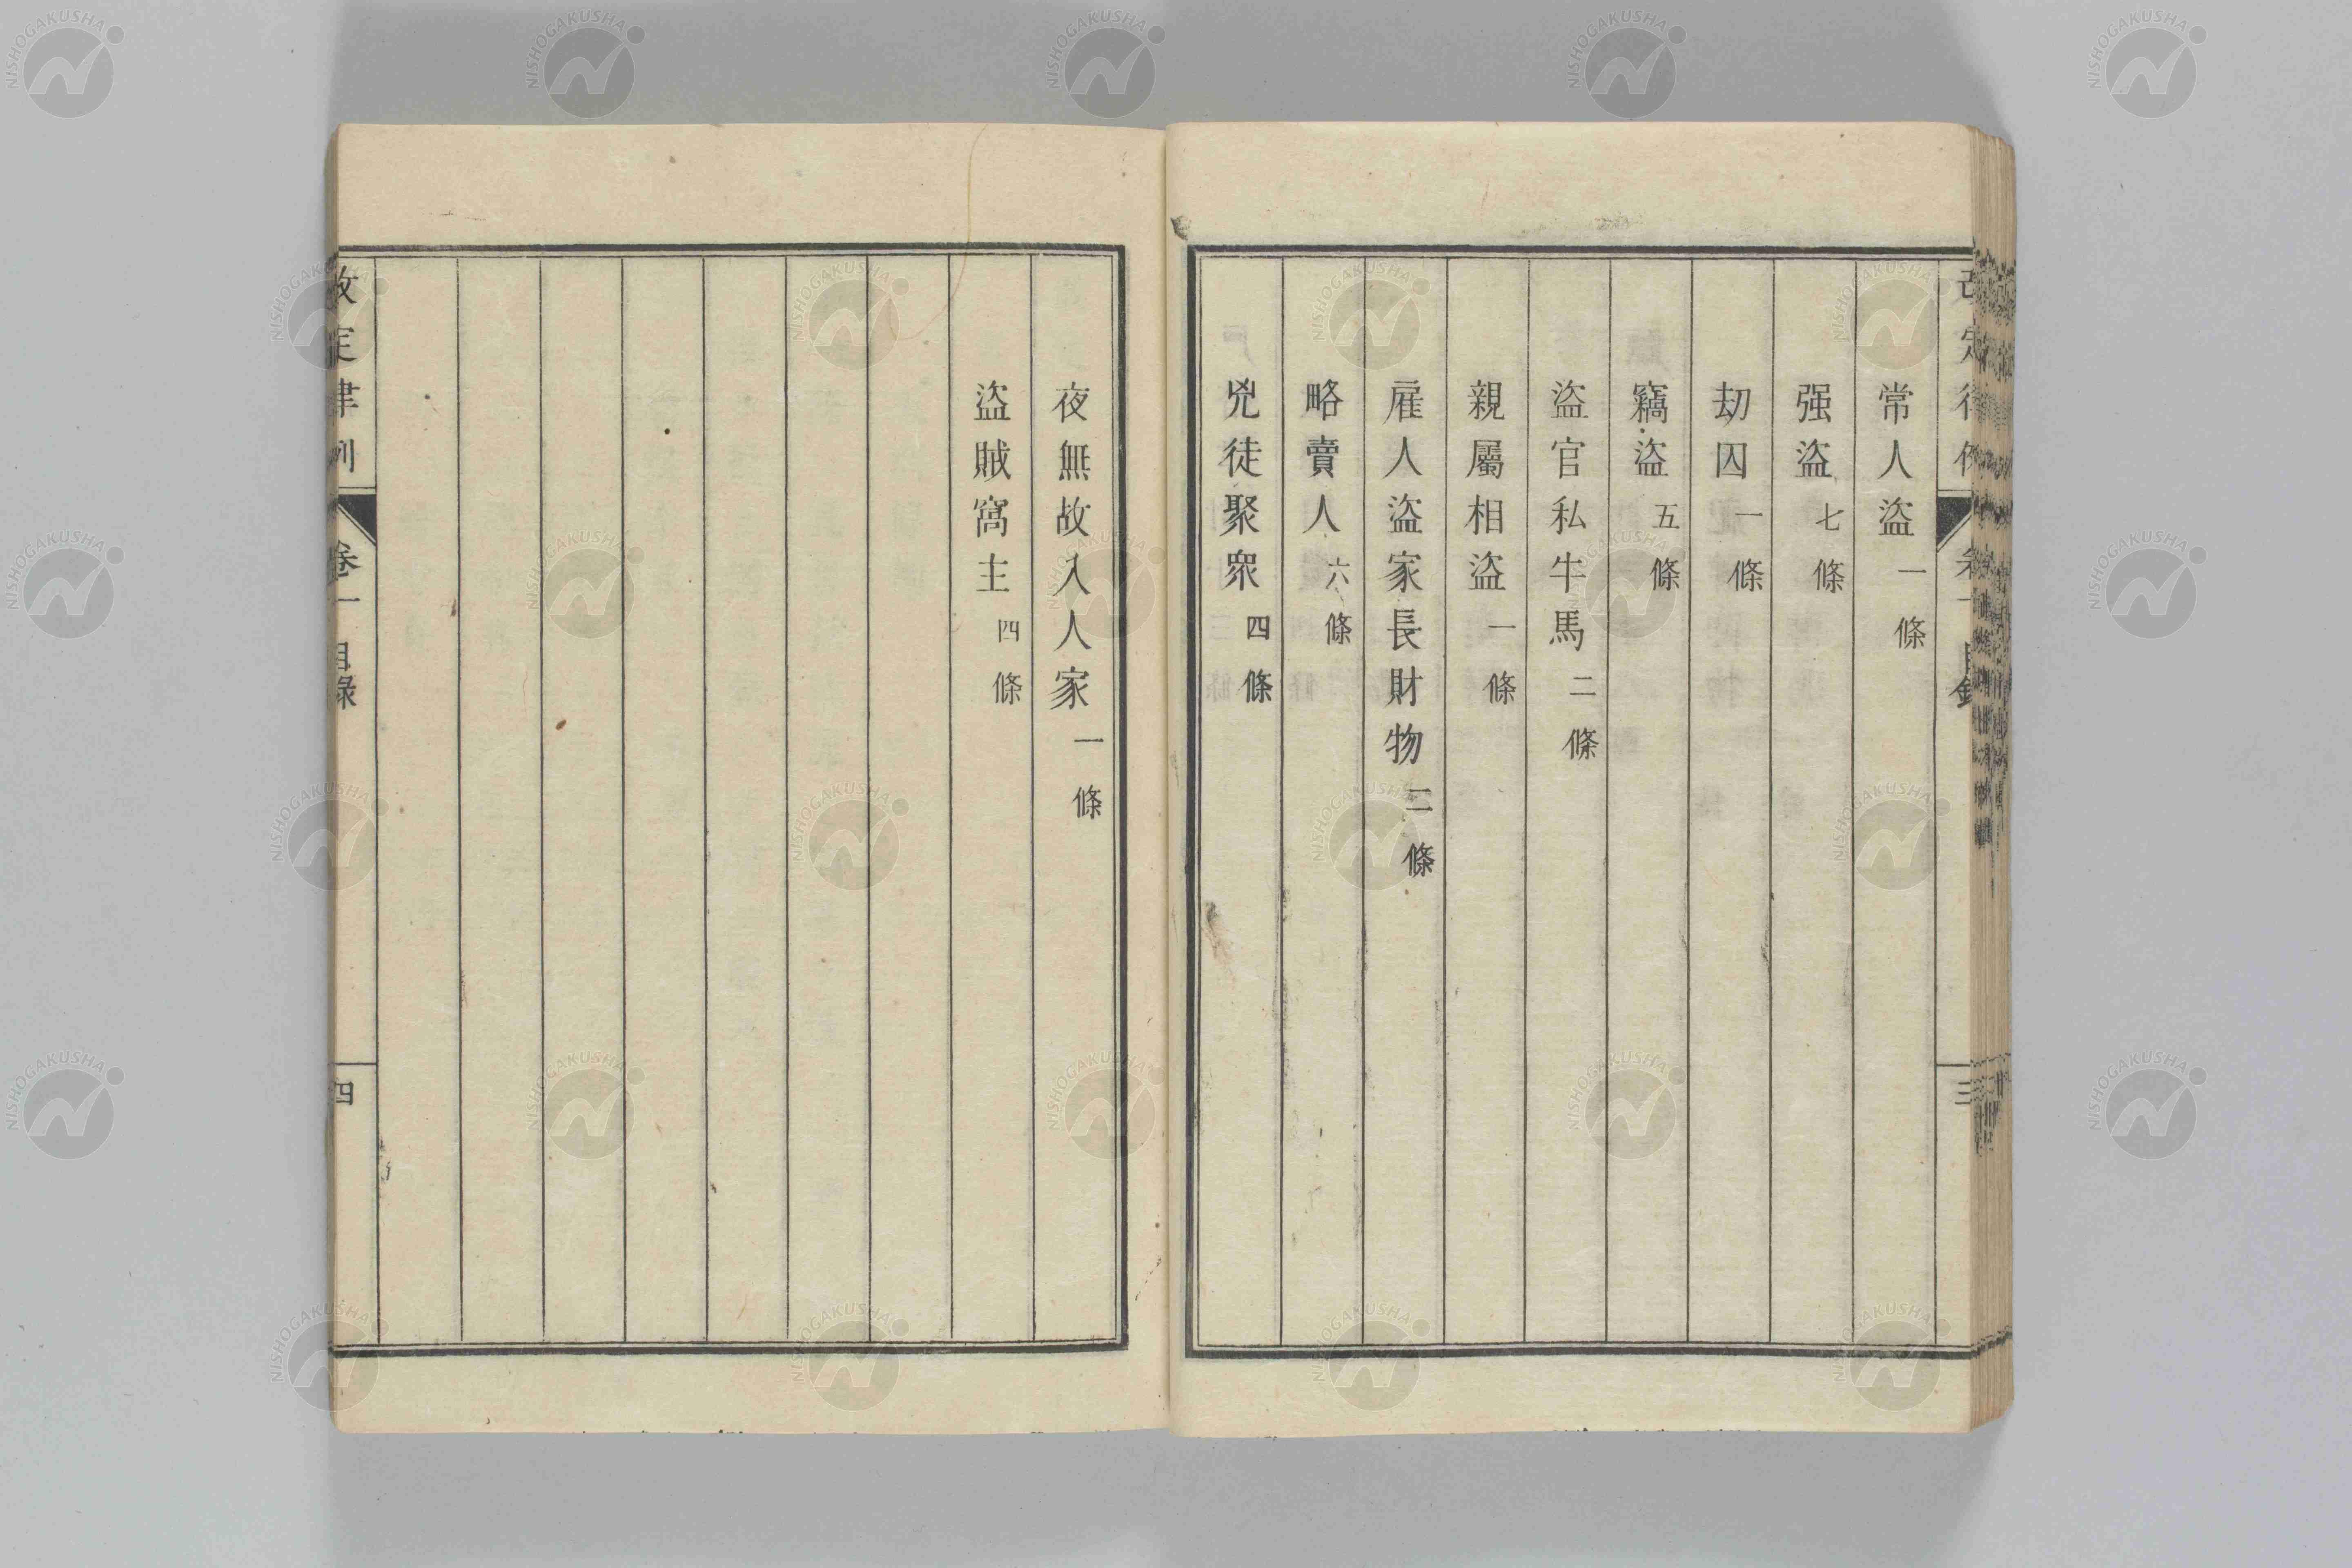 常人盜 一條
强盜 七條
劫囚 一條
竊盜 五條
盜官私牛馬 二條
親屬相盜 一條
雇人盜家長財物 二條
略賣人 六條
兇徒聚衆 四條
夜無故入人家 一條
盜賊窩主 四條
改定律例 卷一 目錄 四
NISHOGAKUSHA